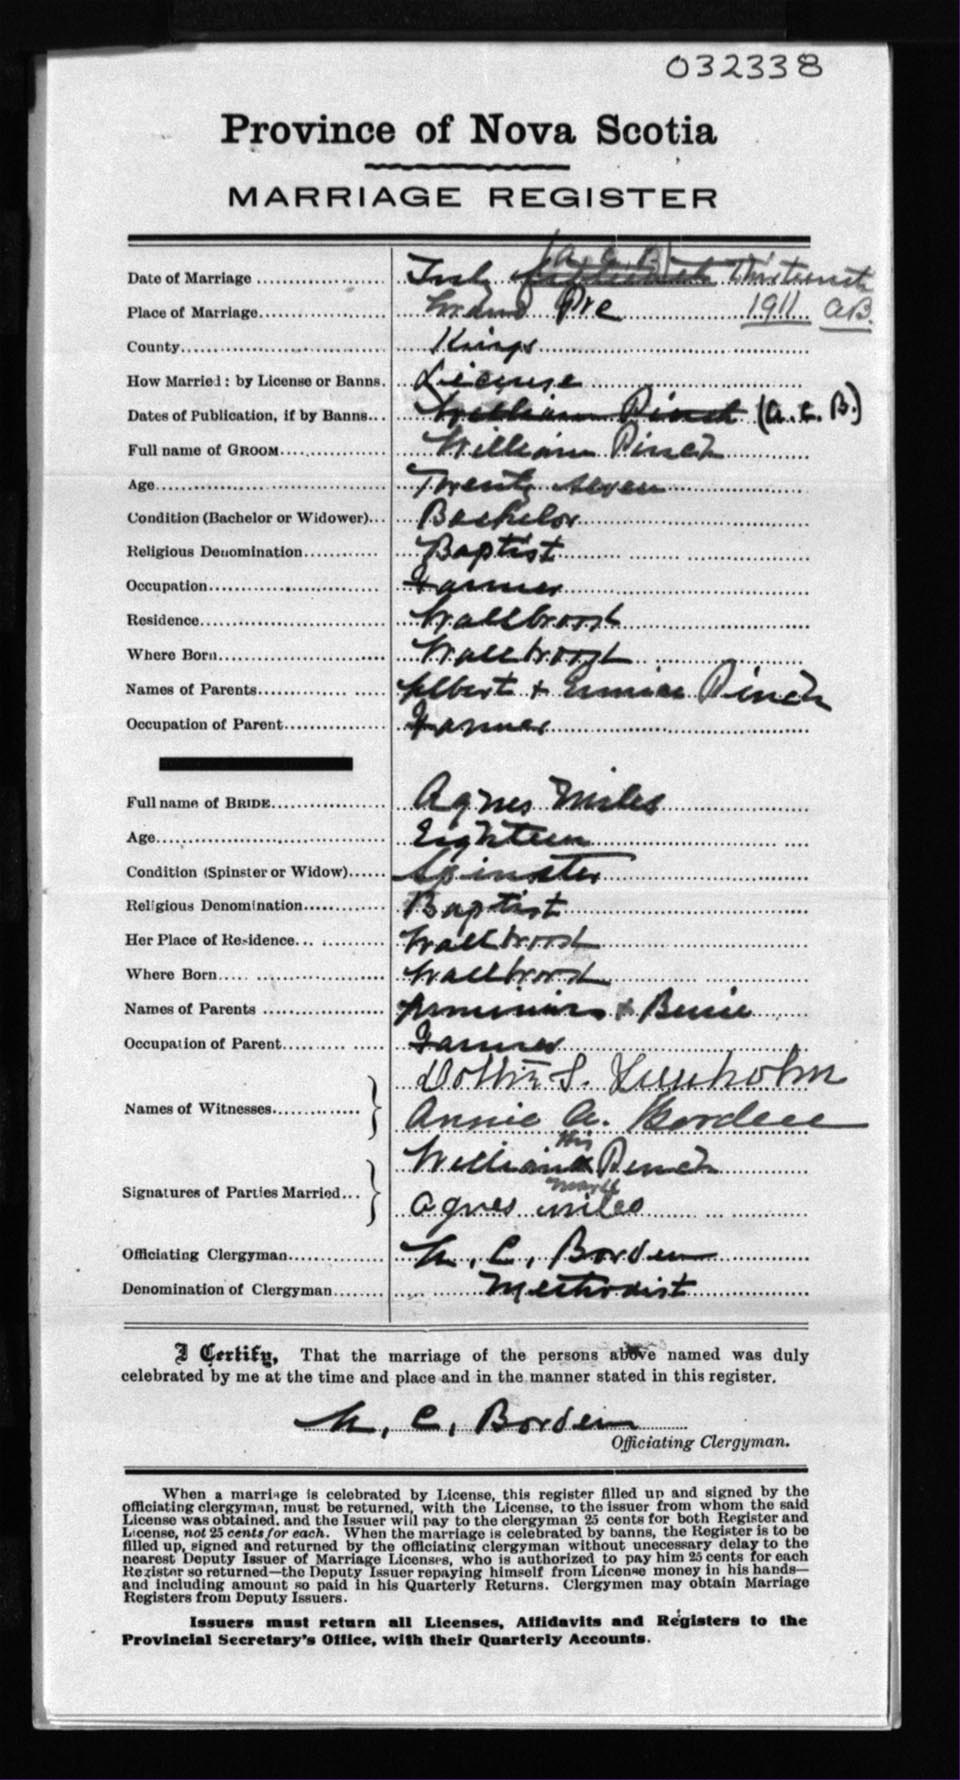 032338
Province of Nova Scotia
MARRIAGE REGISTER
(A. C. B)
Date of Marriage July Thirteenth
Place of Marriage Grand Pre 1911 A.B.
County Kings
How Married: by License or Banns. License
Dates of Publication, if by Banns William Pinch (A. C. B.)
Full name of GROOM William Pinch
Age Twenty seven
Condition (Bachelor or Widower) Bachelor
Religious Denomination Baptist
Occupation Farmer
Residence Wallbrook
Where Born Wallbrook
Names of Parents Albert + Pinch
Occupation of Parent Farmer
Full name of BRIDE Agnes Miles
Age Eighteen
Condition (Spinster or Widow) Spinster
Religious Denomination Baptist
Her Place of Residence Wallbrook
Where Born Wallbrook
Names of Parents +
Occupation of Parent Farmer
S.
Names of Witnesses
Annie A. Borden
his
William X Pinch
Signatures of Parties Married mark
Agnes Miles
Officiating Clergyman C. Borden
Denomination of Clergyman Methodist
I Certify, That the marriage of the persons above named was duly
celebrated by me at the time and place and in the manner stated in this register.
C. Borden
Officiating Clergyman.
When a marriage is celebrated by License, this register filled up and signed by the
officiating clergyman, must be returned, with the License, to the issuer from whom the said
License was obtained, and the Issuer will pay to the clergyman 25 cents for both Register and
License, not 25 cents for each. When the marriage is celebrated by banns, the Register is to be
filled up, signed and returned by the officiating clergyman without unecessary delay to the
nearest Deputy Issuer of Marriage Licenses, who is authorized to pay him 25 cents for each
Register so returned—the Deputy Issuer repaying himself from License money in his hands—
and including amount so paid in his Quarterly Returns. Clergymen may obtain Marriage
Registers from Deputy Issuers.
Issuers must return all Licenses, Affidavits and Registers to the
Provincial Secretary's Office, with their Quarterly Accounts.